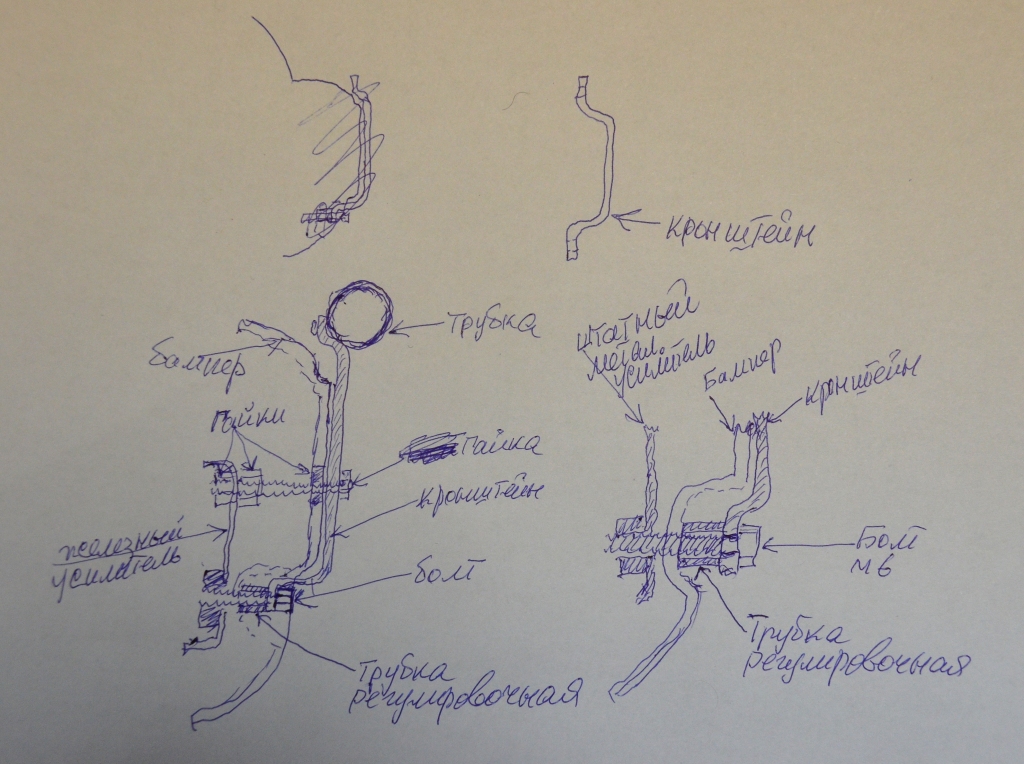 кронштейн
Трубка
бампер
Гайки
Гайка
кронштейн
железный
усилитель
болт
Трубка
регулировочная
штатный
метал.
усилитель
Бампер
кронштейн
Болт
м6
Трубка
регулировочная